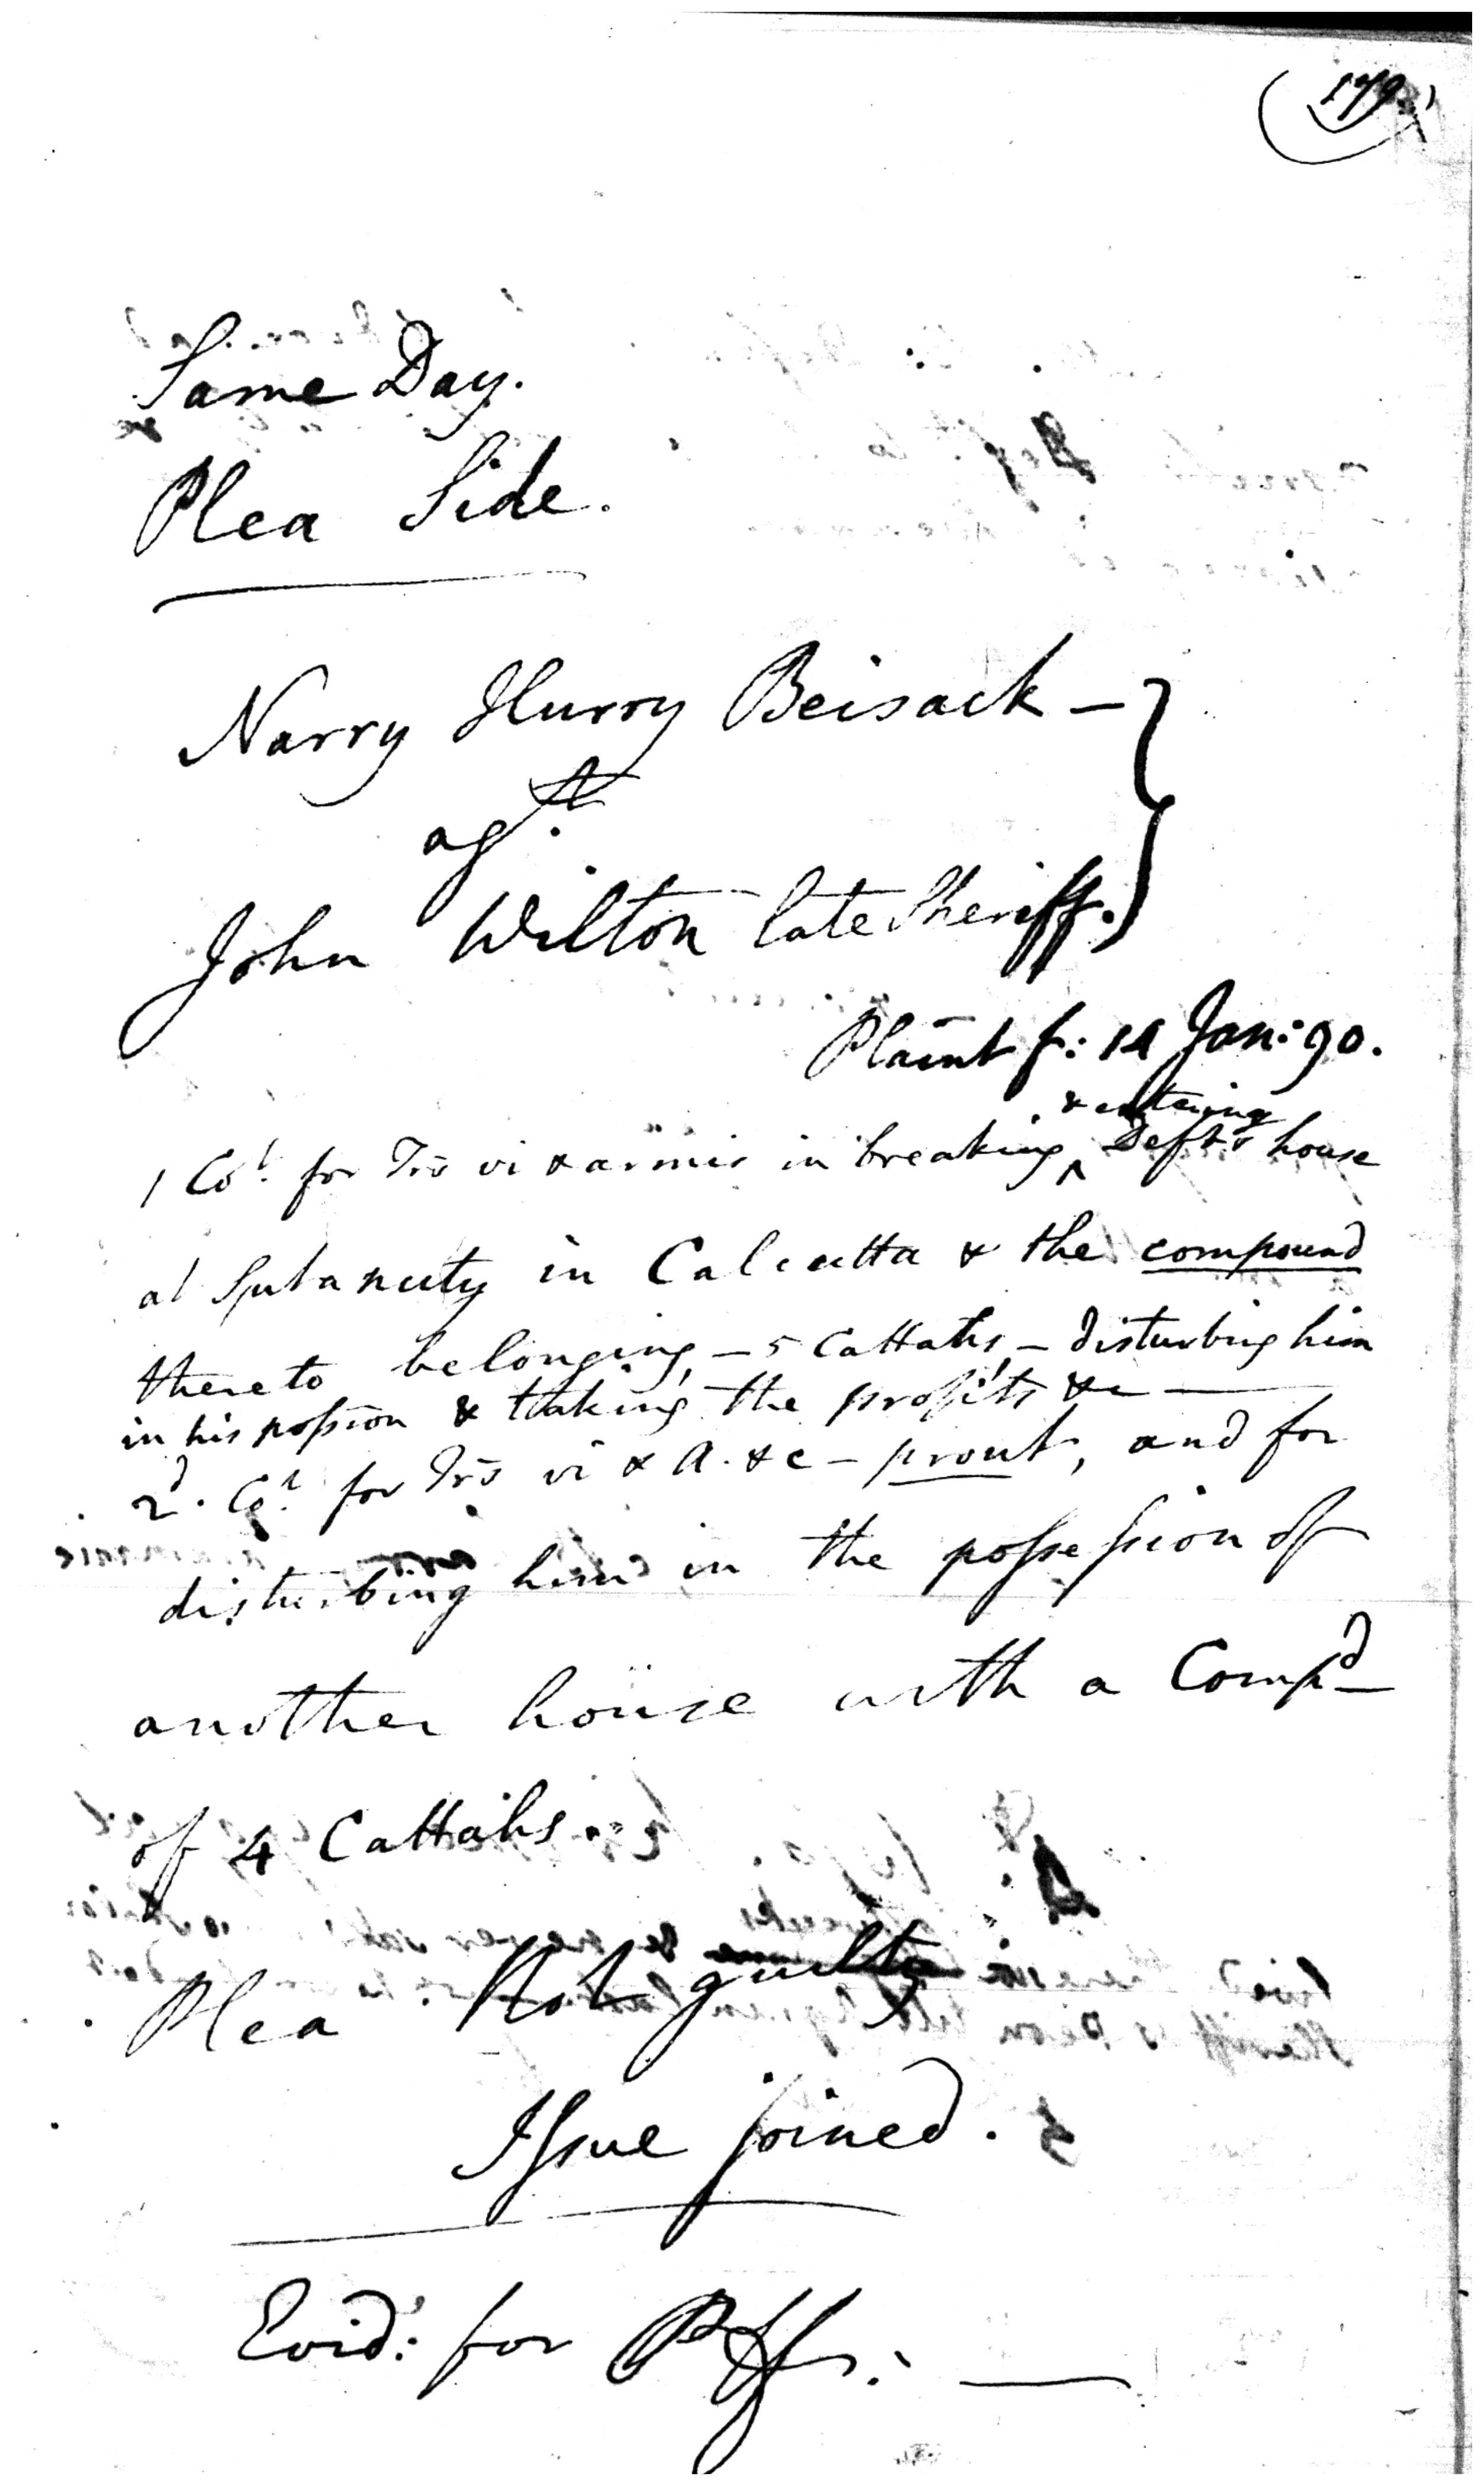 179
Same Day.
Plea Side.
Narry Hurry Beisack –
agst.
John Wilton late Sheriff.
Plaint f: 14 Jan: 90.
& entering
1 Cot. for Trs vi & armis in breaking ^ Defts house
at Sutanuty in Calcutta & the compound
thereto belonging, – 5 Cattahs – disturbing him
in his possion & taking the profits &c —
2d. Cot. for Trs vi & A. &c – prout, and for
disturbing him in the possession of
another house with a Compd
of 4 Cattahs...
Plea Not guilty
Issue joined.
Evid: for Plffs. —